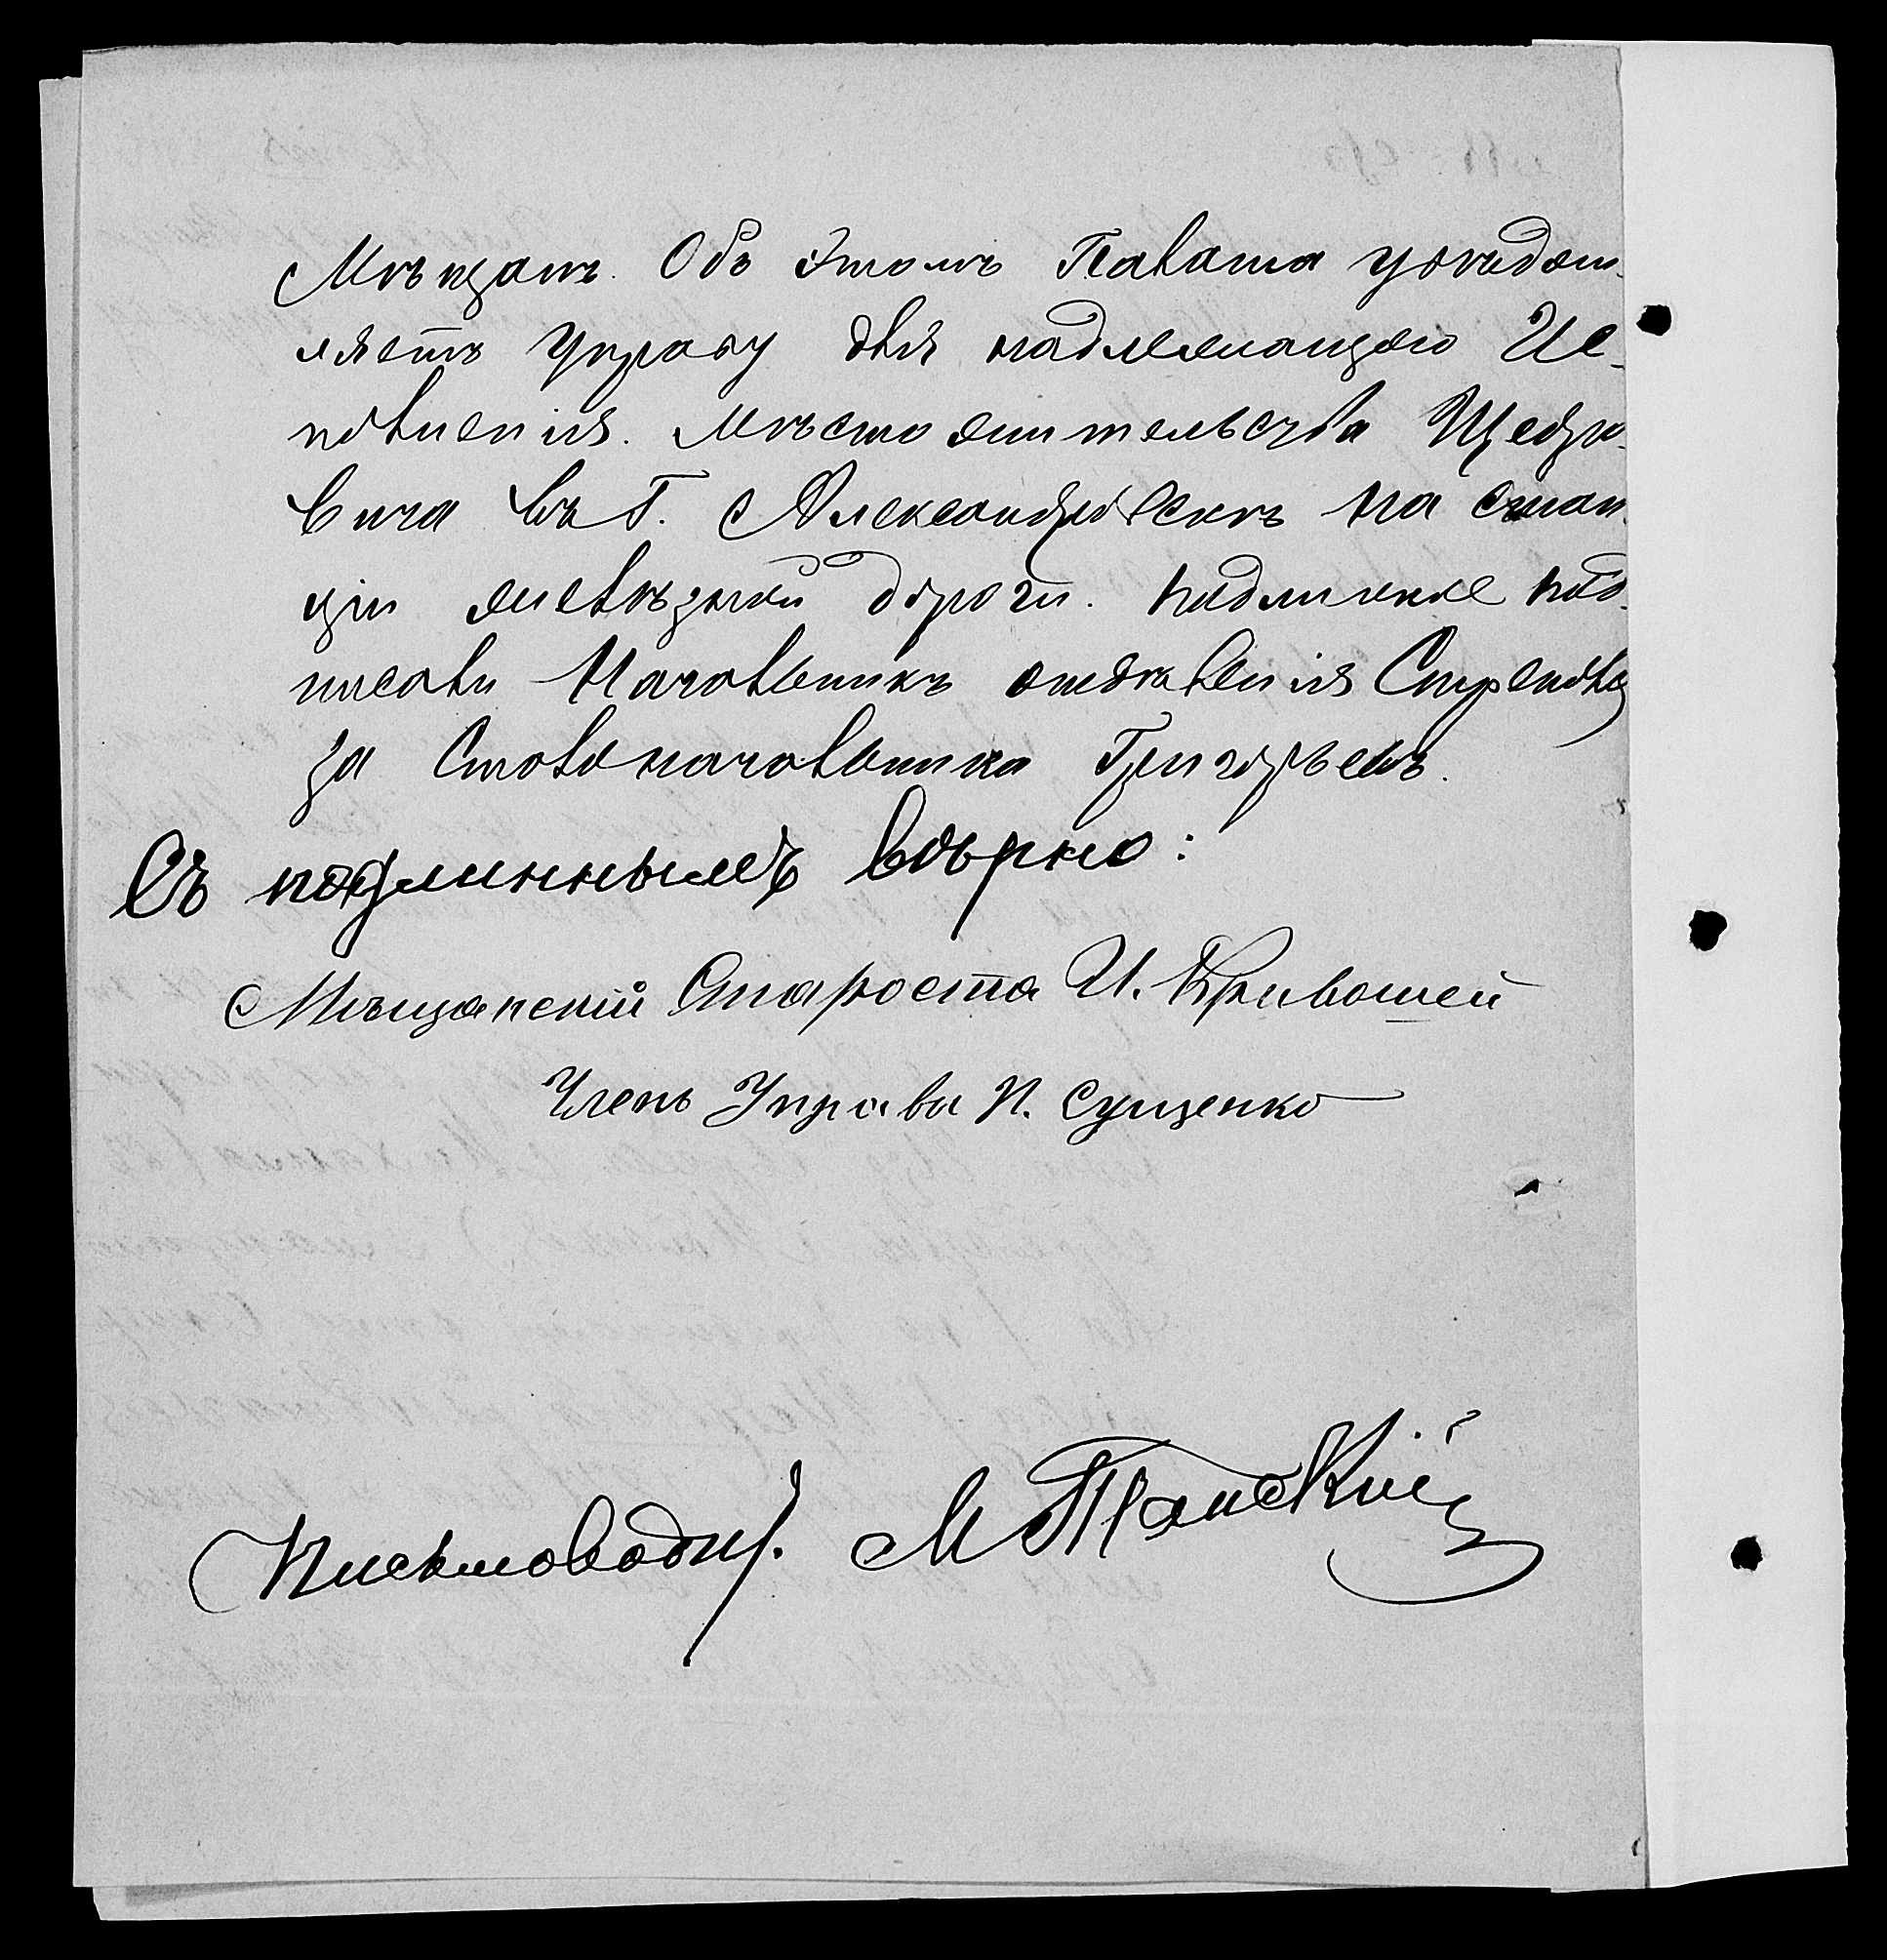 Мѣщанъ. Объ этомъ Палата увѣдом-
ляетъ Управу для надлежащаго Ис-
полненія. Мѣсто жительства Щедро-
вича въ г. Александровскѣ на стан-
ціи желѣзной дороги. Подлинное под-
писали Начальникъ отдѣленія
за Столоначальника Григорьевъ.
Съ подлиннымъ вѣрно:
Мѣщанскій Староста И. Кривошей
Членъ Управы И. Сущенко
Письмоводит. М Танскій